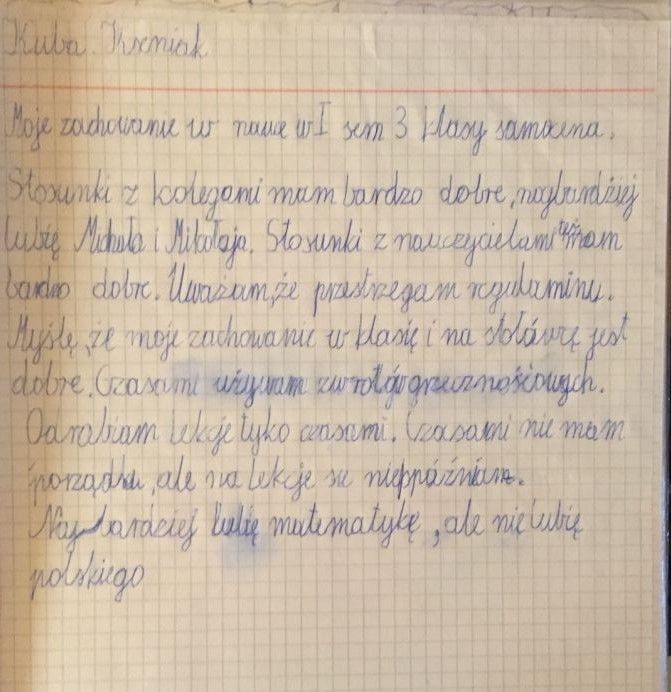 Kuba Kozniak
Moje zachowanie w nauce w I sem 3 klasy samocena.
Stosunki z kolegami mam bardzo dobre, najbardziej
lubię Michała i Mikołaja. Stosunki z nauczycielami też mam
bardzo dobre. Uważam, że przestrzegam regulaminu.
Myślę, że moje zachowanie w klasię i na stołówcę jest
dobre. Czasami używam zwrotów grzecznościowych.
Odrabiam lekcje tyko czasami. Czasami nie mam
porządku, ale na lekcje się niepóźniam.
Najbardziej lubię matematykę, ale nielubię
polskiego